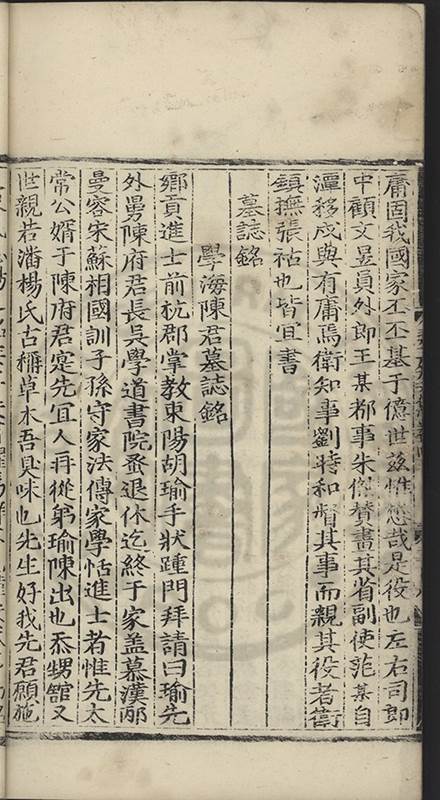 庸固我國家丕丕基于億世茲惟愸哉是役也左右司郎
中顧文昱員外郎王某都事朱傑贊畫其省副使范某自
潭移戍與有庸焉衛知事劉時和督其事而親其役者衛
鎮撫張祜也皆宜書
墓誌銘
學海陳君墓誌銘
鄉貢進士前杭郡掌教東陽胡瑜手狀踵門拜請曰瑜先
外舅陳府君長吳學道書院蚤退休迄終于家盖慕漢邴
曼容宋蘇相國訓子孫守家法傳家學恬進士者惟先太
常公婿于陳府君寔先宜人再從弟瑜陳出也忝甥舘又
世親若潘楊氏古稱草木吾臭味也先生好我先君願施